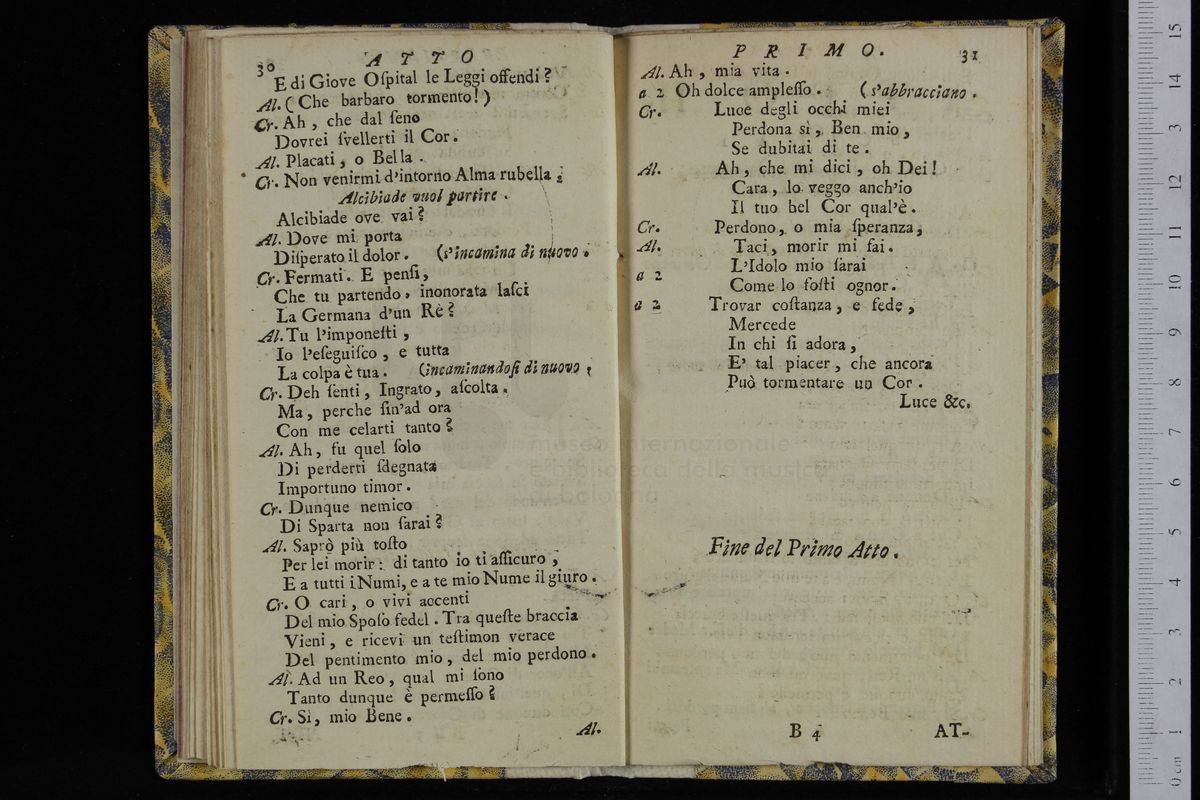 30 ATTO
E di Giove Oſpital le Leggi offendi?
Al. (Che barbaro tormento!)
Cr. Ah, che dal ſeno
Dovrei ſvellerti il Cor.
Al. Placati, o Bella.
Cr. Non venirmi d'intorno Alma rubella;
Alcibiade vuol partire.
Alcibiade ove vai?
Al. Dove mi porta
Diſperato il dolor. (s'incamina di nuovo.
Cr. Fermati. E penſi,
Che tu partendo, inonorata laſci
La Germana d'un Rè?
Al. Tu l'imponeſti,
Io l'eſeguiſco, e tutta
La colpa è tua. (incaminandoſi di nuovo,
Cr. Deh ſenti, Ingrato, aſcolta.
Ma, perche ſin'ad ora
Con me celarti tanto?
Al. Ah, fu quel ſolo
Di perderti ſdegnata
Importuno timor.
Cr. Dunque nemico
Di Sparta non ſarai?
Al. Saprò più toſto
Per lei morir: di tanto io ti aſſicuro,
E a tutti i Numi, e a te mio Nume il giuro.
Cr. O cari, o vivi accenti
Del mio Spoſo fedel. Tra queſte braccia
Vieni, e ricevi un teſtimon verace
Del pentimento mio, del mio perdono.
Al. Ad un Reo, qual mi ſono
Tanto dunque è permeſſo?
Cr. Sì, mio Bene.
Al.
PRIMO. 31
Al. Ah, mia vita.
a 2 Oh dolce ampleſſo. (s'abbracciano.
Cr. Luce degli occhi miei
Perdona sì, Ben mio,
Se dubitai di te.
Al. Ah, che mi dici, oh Dei!
Cara, lo veggo anch'io
Il tuo bel Cor qual'è.
Cr. Perdono, o mia ſperanza,
Al. Taci, morir mi fai.
a 2 L'Idolo mio ſarai
Come lo foſti ognor.
a 2 Trovar coſtanza, e fede,
Mercede
In chi ſi adora,
E' tal piacer, che ancora
Può tormentare un Cor.
Luce &c.
Fine del Primo Atto.
B 4 AT-
museo internazionale
e biblioteca della musica
di bologna
0 cm 1 2 3 4 5 6 7 8 9 10 11 12 13 14 15